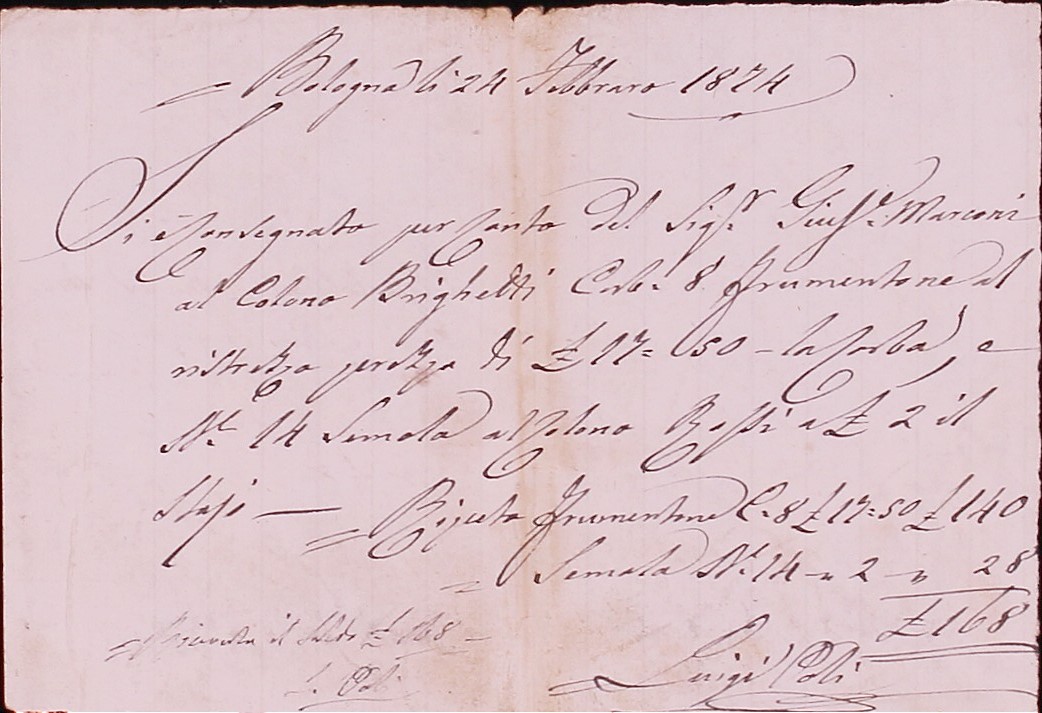 Bologna li 24 Febbraro 1874
Si è Consegnato per Conto del Sigr. Giuse. Marconi
al Colono Brighetti Corb. 8 Frumentone al
ristretto prezzo di £ 17=50 - la Corba, e
N.º 14 Semola al Colono Rossi a £ 2 il
Stajo — = Frumentone C. 8 £ 17=50 £ 140
= Semola N.º 14 - „ 2 - „ 28
£ 168
= Ricevuta il Saldo £ 168 -
L. Poli
Luigi Poli